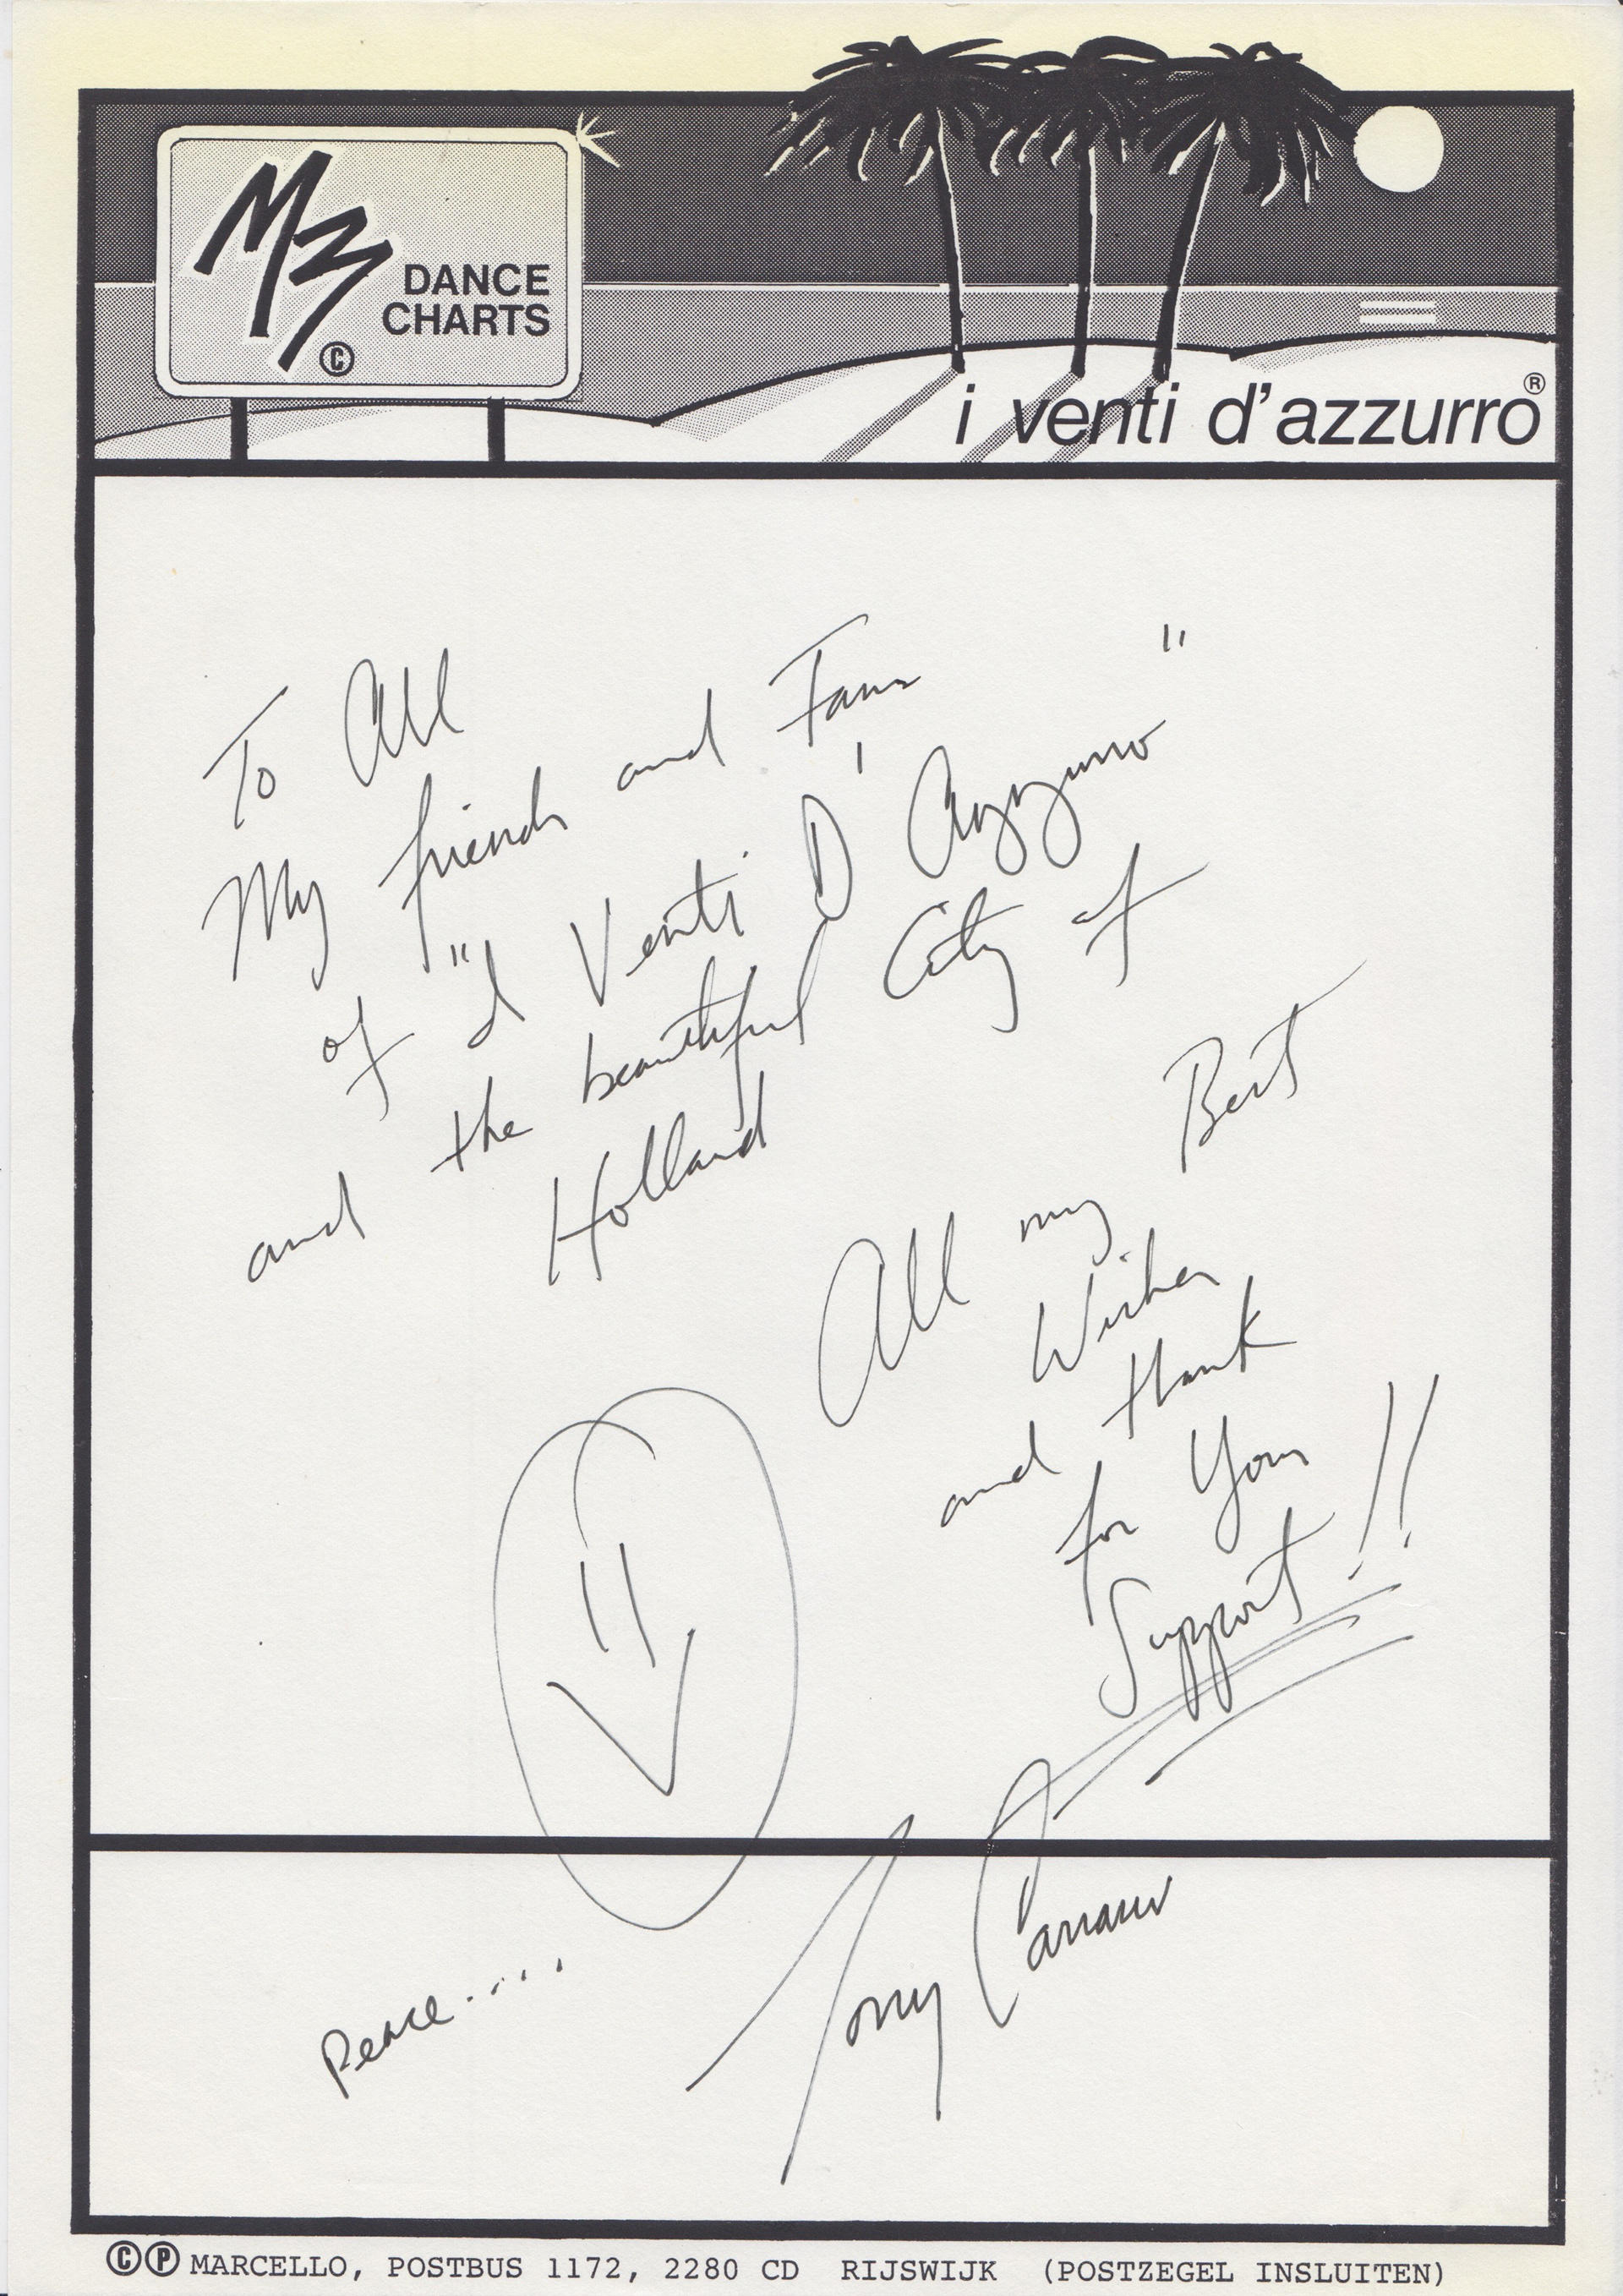 M3
DANCE
CHARTS
©
i venti d'azzurro®
To All
My friends and Fans
of "I Venti D'Azzurro"
and the beautiful City of
Holland
All my Best
Wishes
and thank
for Your
Support!!
Peace.....
Tony Carrasco
©Ⓟ MARCELLO, POSTBUS 1172, 2280 CD RIJSWIJK (POSTZEGEL INSLUITEN)